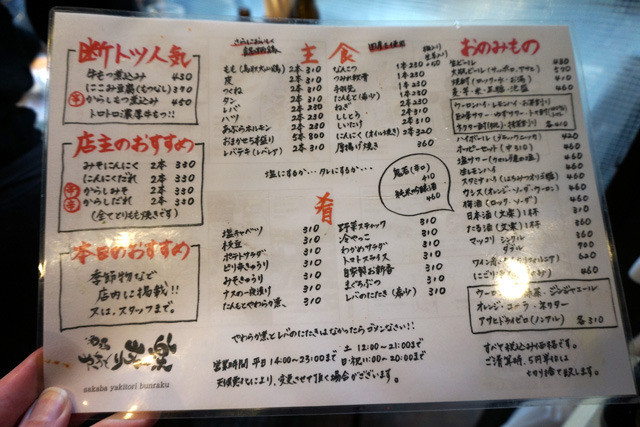 断トツ人気
牛もつ煮込み 430
にこみ豆腐(もつなし) 390
からしもつ煮込み 440
トロトロ濃厚牛もつ!!
店主のおすすめ
みそにんにく 2本 330
にんにくだれ 2本 330
からしみそ 2本 330
からしだれ 2本 330
(全てとりもも焼きです)
本日のおすすめ
季節物など
店内に掲載!!
又は、スタッフまで。
酒場
やきとり 文楽
sakaba yakitori bunraku
主食
もも(鳥取大山鶏) 2本 310
皮 2本 310
つくね 2本 310
タン 2本 310
レバ 2本 310
ハツ 2本 310
あぶらホルモン 2本 310
おまかせ5本盛り 5本 800
レバテキ(レバレア) 2本 310
なんこつ 1本 230
つみれ軟骨 1本 230
手羽先 1本 230
たんもと(希少) 1本 230
ねぎ 2本 310
ししとう 2本 310
しいたけ 2本 310
にんにく(オイル焼き) 2本 320
厚揚げ焼き 360
塩にするか・・タレにするか・・・
鬼若(辛口) 410
純米吟醸酒 460
肴
塩キャベツ 310
枝豆 310
ポテトサラダ 310
ピリ辛きゅうり 310
みそきゅうり 310
ナスの一夜漬け 310
たんもとやわらか煮、 310
野菜スティック 310
冷やっこ 310
わかめサラダ 310
トマトスライス 310
自家製お新香 310
まぐろぶつ 310
レバのにたき(希少) 310
やわらか煮とレバのにたきはなかったらゴメンなさい!!
営業時間 平日14:00〜23:00まで 土 12:00〜21:00まで
日・祝 11:00〜20:00まで
天候悪化により、変更させて頂く場合がございます。
おのみもの
生ビール
大瓶ビール(サッポロ、アサヒ) 570
ハイボール(ブラックニッカ) 420
ホッピーセット
塩レモンハイ 460
梅酒(ロック・ソーダ)
マッコリ シングル
ダブル
オレンジ・コーラ・ネクター
アサヒドライゼロ(ノンアル) 各310
すべて税込み価格です。
ご清算時、5円単位は
切り捨て致します。